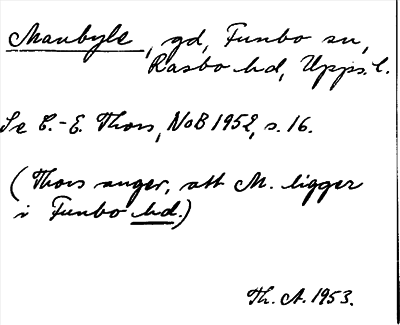 Marbyle, gd, Funbo sn,
Rasbo hd, Upps. l.
Se C.-E. Thors, NoB 1952, s. 16.
(Thors anger, att M. ligger
i Funbo hd.)
Th. A. 1953.